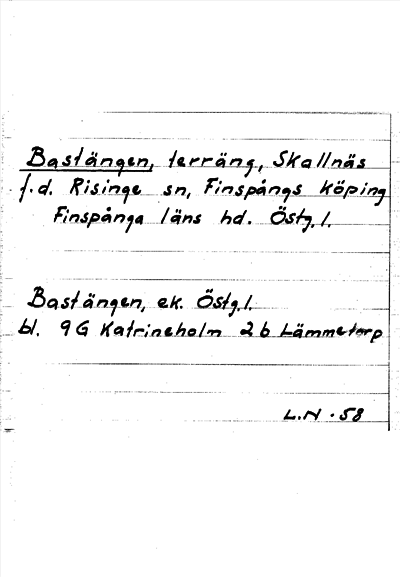 Bastängen, terräng, Skallnäs
f.d. Risinge sn, Finspångs köping
Finspånga läns hd. Östg.l.
Bastängen, ek. Östg.l.
bl. 9G Katrineholm 2b Lämmetorp
L.N. 58